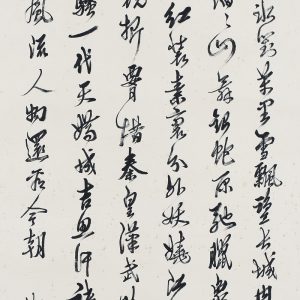 冰封萬里雪飄望长城内
山舞銀蛇原馳臘象
紅裝素裹分外妖嬈江
折腰惜秦皇漢武
騷一代天驕成吉思汗
風流人物還看今朝